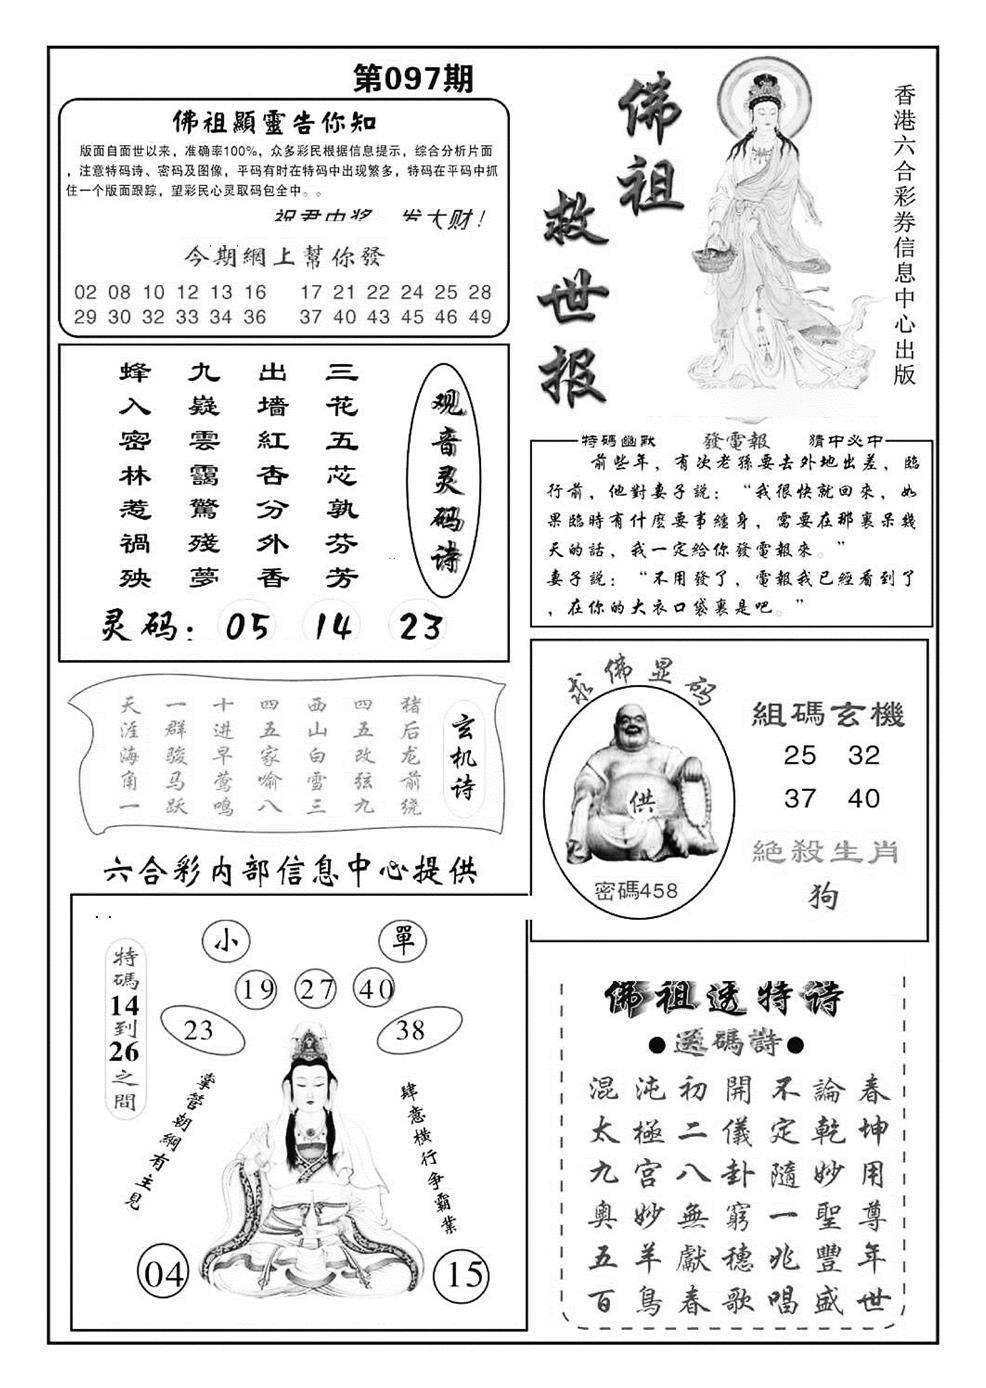 第097期
佛祖顯靈告你知
版面自面世以来，准确率100%，众多彩民根据信息提示，综合分析片面
，注意特码诗、密码及图像，平码有时在特码中出现繁多，特码在平码中抓
住一个版面跟踪，望彩民心灵取码包全中。。
祝君中奖 发大财！
今期網上幫你發
02 08 10 12 13 16 17 21 22 24 25 28
29 30 32 33 34 36 37 40 43 45 46 49
佛祖
救世报
香港六合彩券信息中心出版
观音灵码诗
三花五芯孰芬芳
出墙紅杏分外香
九嶷雲靄驚殘夢
蜂入密林惹禍殃
灵码：05 14 23
特碼幽默 發電報 猜中必中
前些年，有次老孫要去外地出差，臨
行前，他對妻子説：“我很快就回來，如
果臨時有什麽要事纏身，需要在那裏呆幾
天的話，我一定給你發電報來。”
妻子説：“不用發了，電報我已經看到了
，在你的大衣口袋裏是吧。”
玄机诗
猪后龙前绕
四五改弦九
西山白雪三
四五家喻八
十进早莺鸣
一群骏马跃
天涯海角一
六合彩内部信息中心提供
求佛显码
供
密碼458
組碼玄機
25 32
37 40
絕殺生肖
狗
特碼14到26之間
小
單
19 27 40
23
38
掌管朝綱有主見
肆意橫行争霸業
04
15
佛祖透特诗
●透碼詩●
混沌初開不論春
太極二儀定乾坤
九宮八卦隨妙用
奥妙無窮一聖尊
五羊獻穗兆豐年
百鳥春歌唱盛世